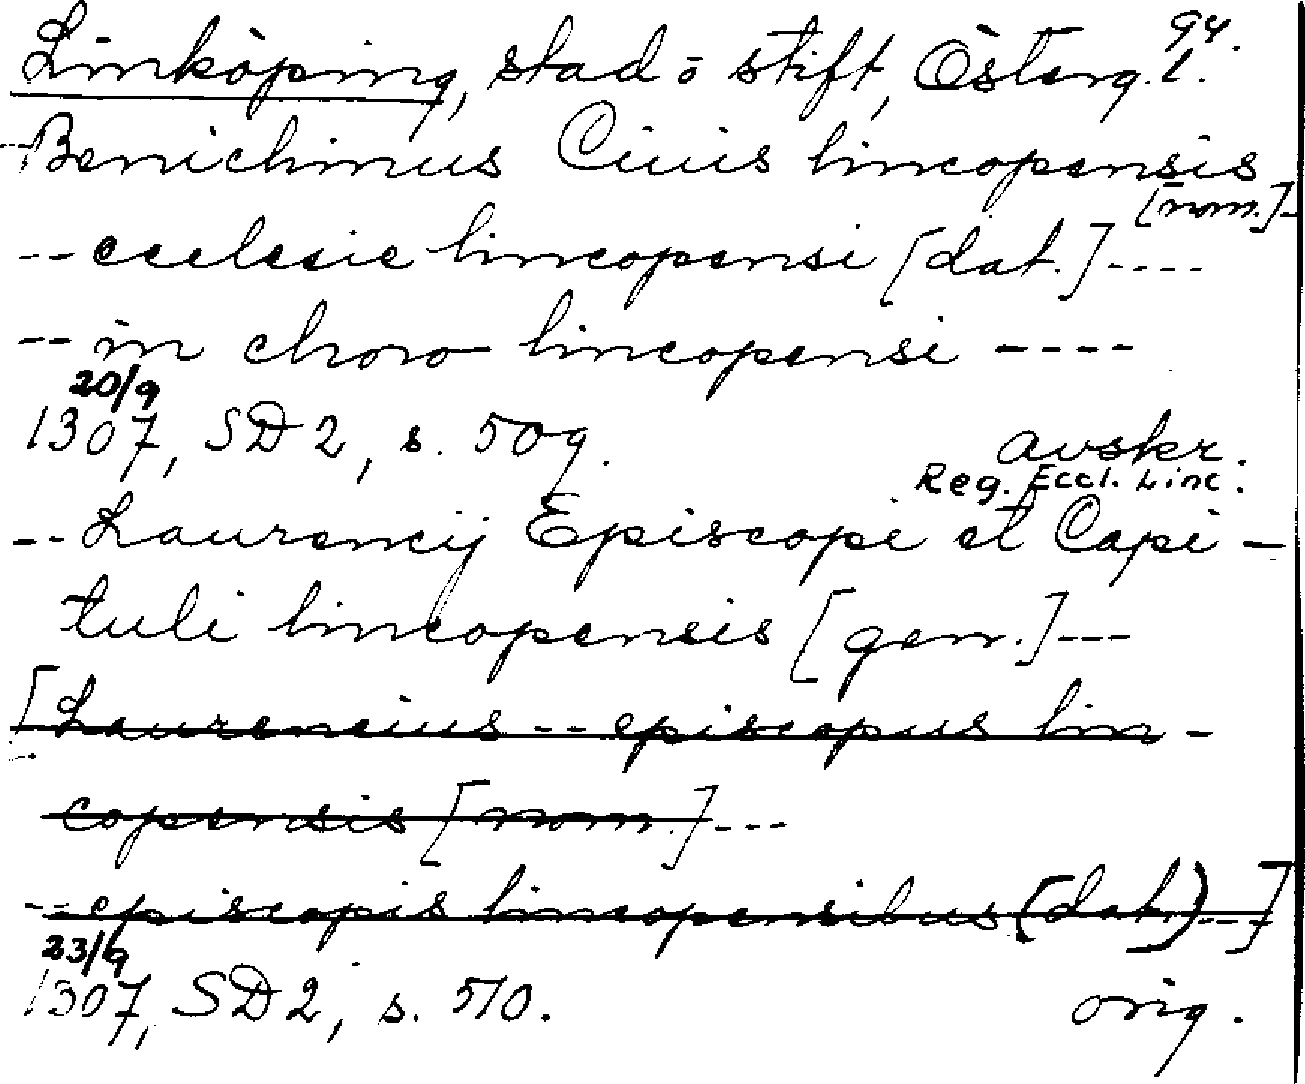 94.
Linköping, stad o stift, Österg. l.
--Benichinus Ciuis lincopensis
[nom.]-
--ecclesie lincopensi [dat.]----
--in choro lincopensi ----
20/9
1307, SD 2, s. 509. avskr.
Reg. Eccl. Linc.
--Laurencij Episcopi et Capi-
tuli lincopensis [gen.]---
[Laurencius -- episcopus lin-
copensis [nom.]---
--episcopis lincopensibus (dat.)---]
23/9
1307, SD 2, s. 510. orig.